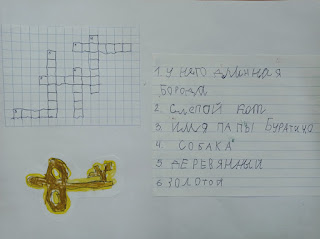 1. У НЕГО ДЛИННАЯ
БОРОДА
2. СЛЕПОЙ КОТ
3. ИМЯ ПАПЫ БУРАТИНО
4. СОБАКА
5. ДЕРЕВЯННЫЙ
6 ЗОЛОТОЙ